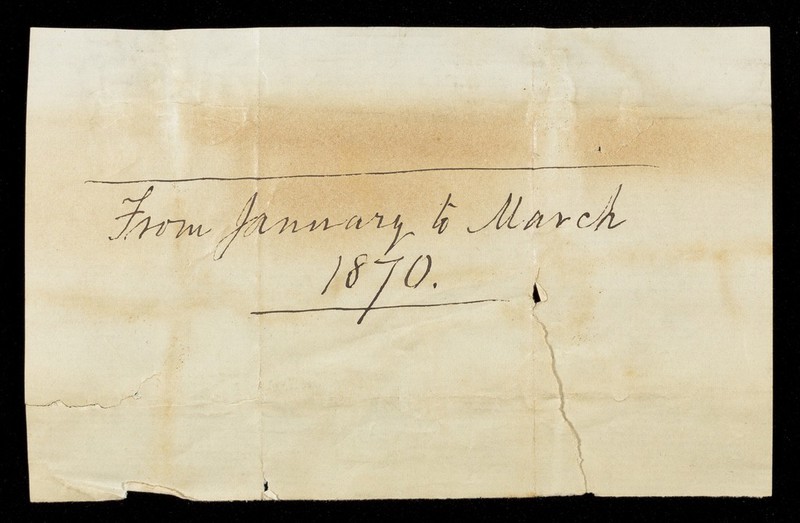 From January to March
1870.